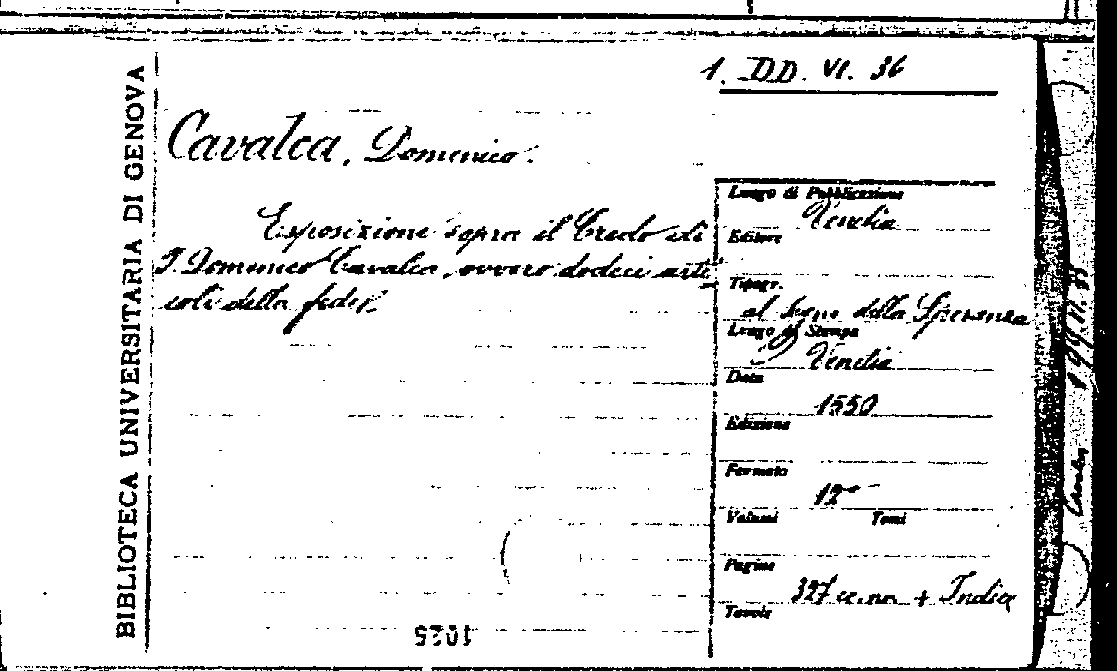 1. DD. VI. 36
BIBLIOTECA UNIVERSITARIA DI GENOVA
Cavalca, Domenico.
Esposizione sopra il Credo di
F. Domenico Cavalca, ovvero dodeci arti
coli della fede.
Luogo di Pubblicazione
Venetia
Editore
Tipogr.
al segno della Speranza
Luogo di Stampa
Venetia
Data
1550
Edizione
Formato
12°
Volumi Tomi
Pagine
327 cc.nn. + Indice
Tavole
1025